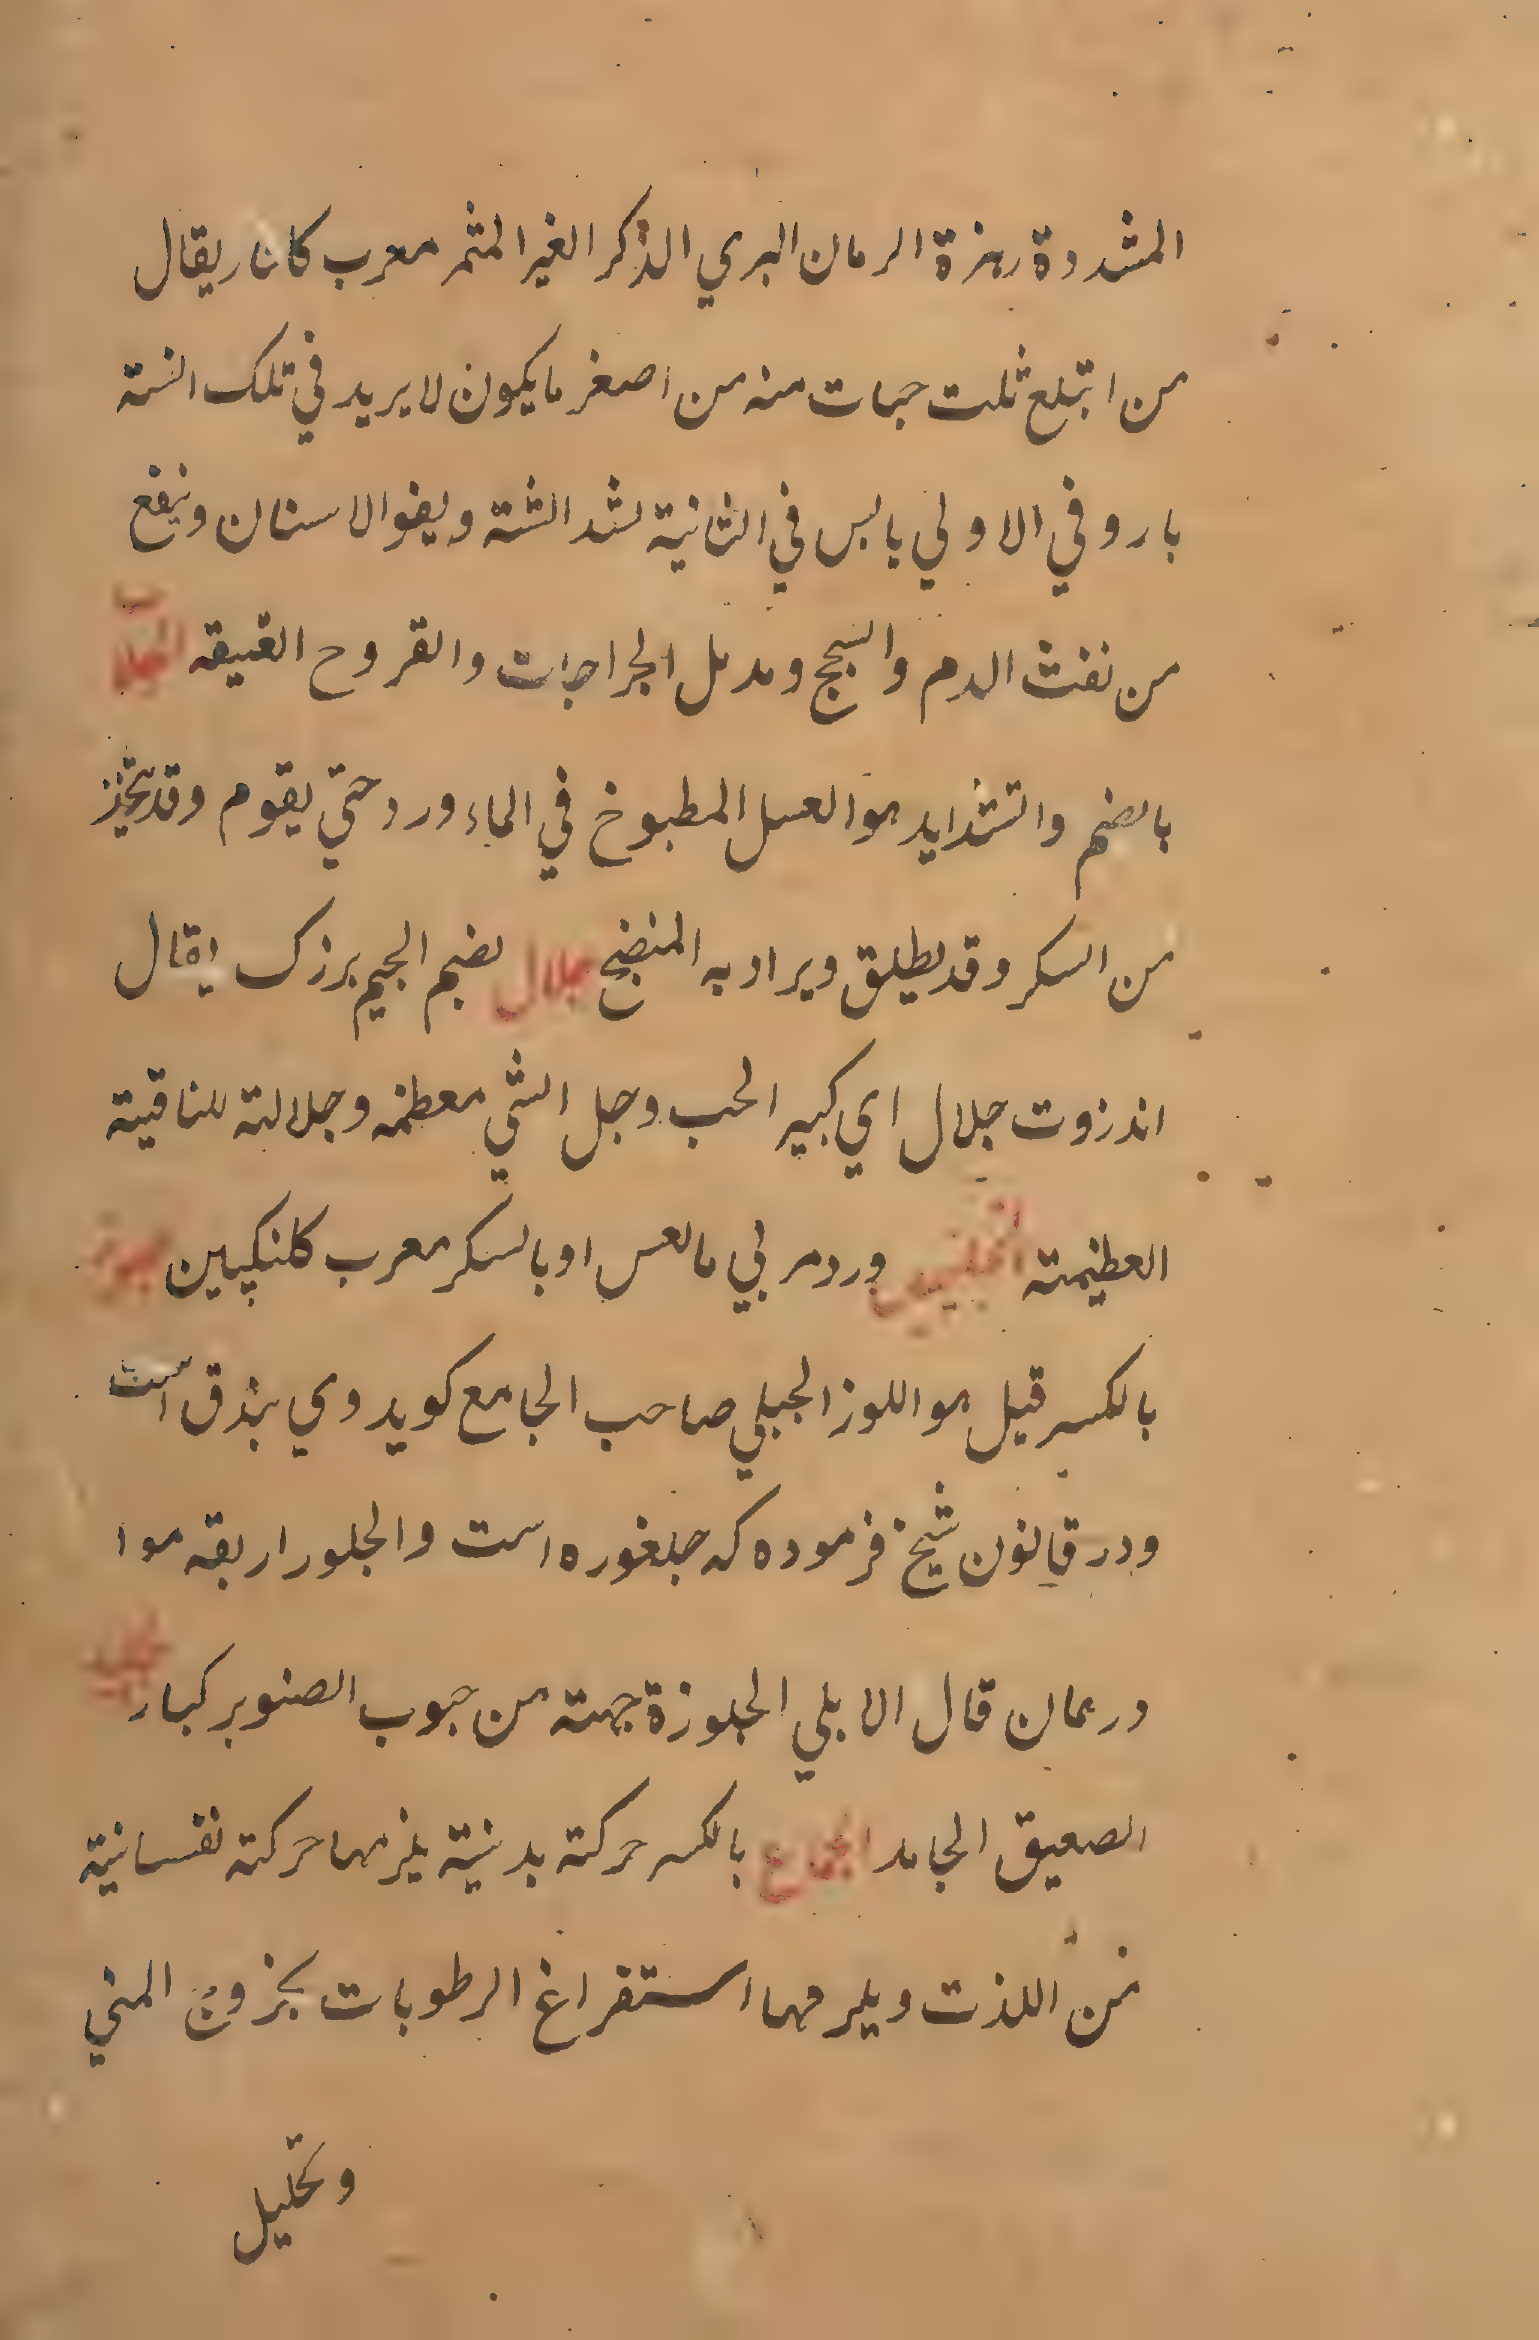 المشددة زهرة الرمان البري الذكر الغير المثمر معرب كلنار يقال
من ابتلع ثلت حبات منه من اصغر ما يكون لا يريد في تلك السنة
بارد في الاولي يابس في الثانية يشد اللثة ويقو الاسنان وينفع
من نفث الدم والسحج ومدمل الجراحات والقروح العتيقه الجلاب
بالضم والتشديد هو العسل المطبوخ في الماء ورد حتي يقوم وقد يتخذ
من السكر وقد يطلق ويراد به المنضج جلال بضم الجيم بزرك يقال
اندزوت جلال اي كبير الحب وجل الشي معظمه وجلالة للناقية
العظيمة الجلنجبين ورد مربي بالعس او بالسكر معرب كلنكبين
بالكسر قيل هو اللوز الجبلي صاحب الجامع كويد وي بندق است
ودر قانون شيخ فرموده كه جلغوره است والجلور اربقه هوا
در عمان قال الابلي الجلوزة جهة من حبوب الصنوبر كبار
الصعيق الجامد الجماع بالكسر حركة بدنية يلزمها حركة نفسانية
من اللذت ويلرمها استفراغ الرطوبات بخروج المني
وتحليل